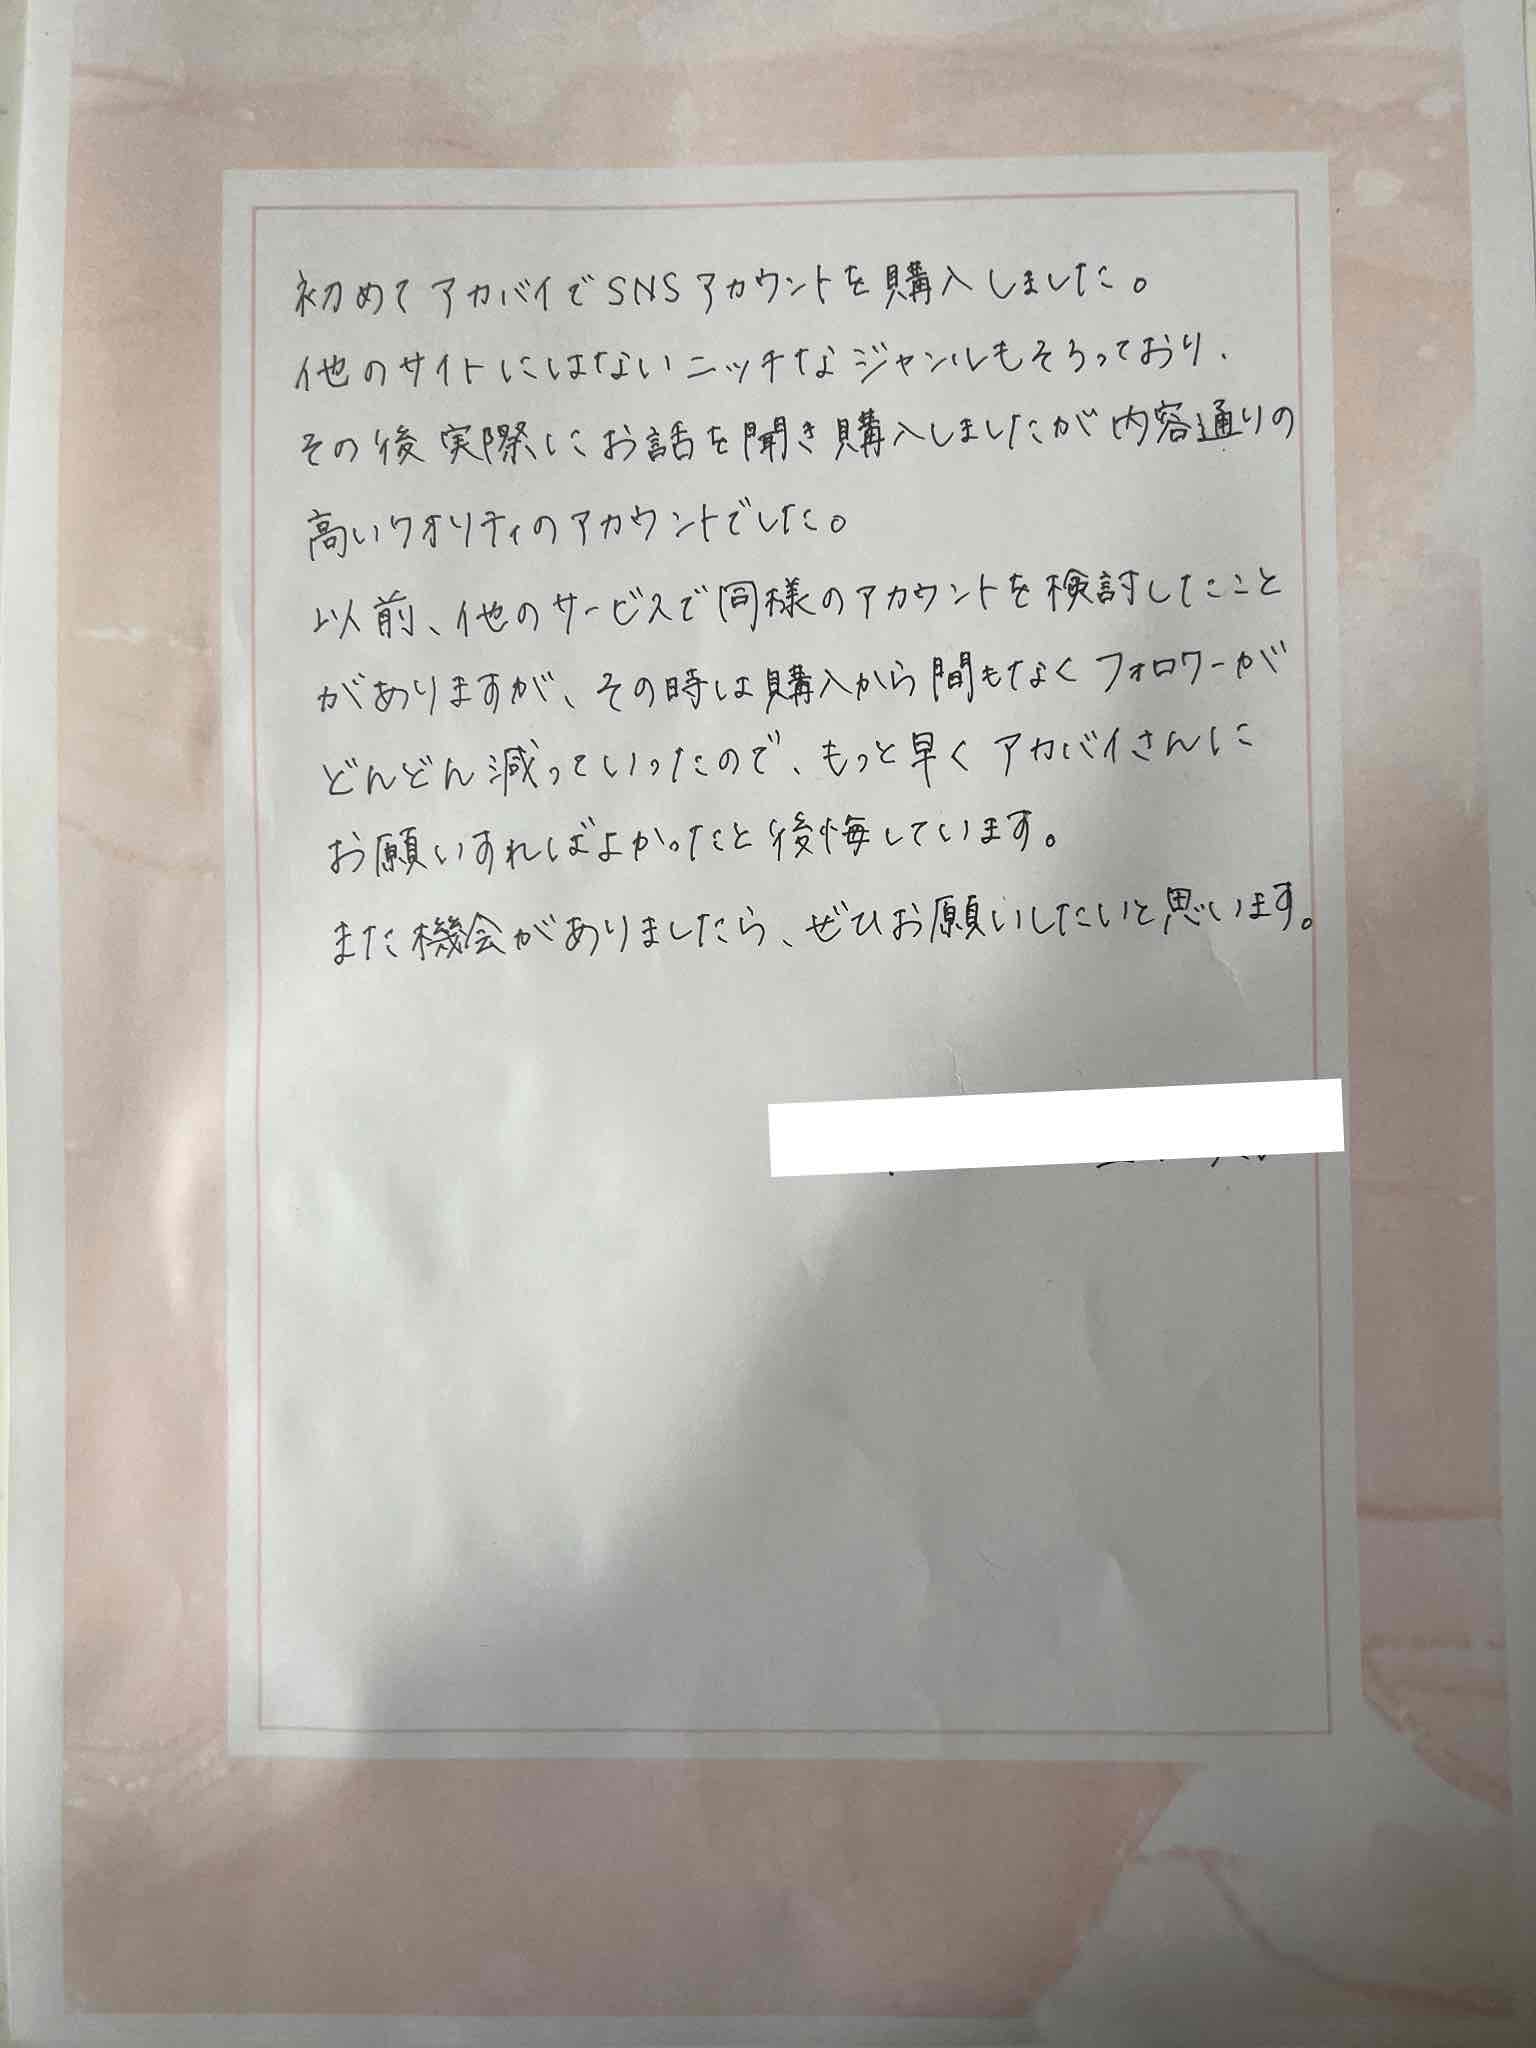 初めてアカバイでSNSアカウントを購入しました。
他のサイトにはないニッチなジャンルもそろっており、
その後実際にお話を聞き購入しましたが内容通りの
高いクオリティのアカウントでした。
以前、他のサービスで同様のアカウントを検討したこと
がありますが、その時は購入から間もなくフォロワーが
どんどん減っていったので、もっと早くアカバイさんに
お願いすればよかったと後悔しています。
また機会がありましたら、ぜひお願いしたいと思います。